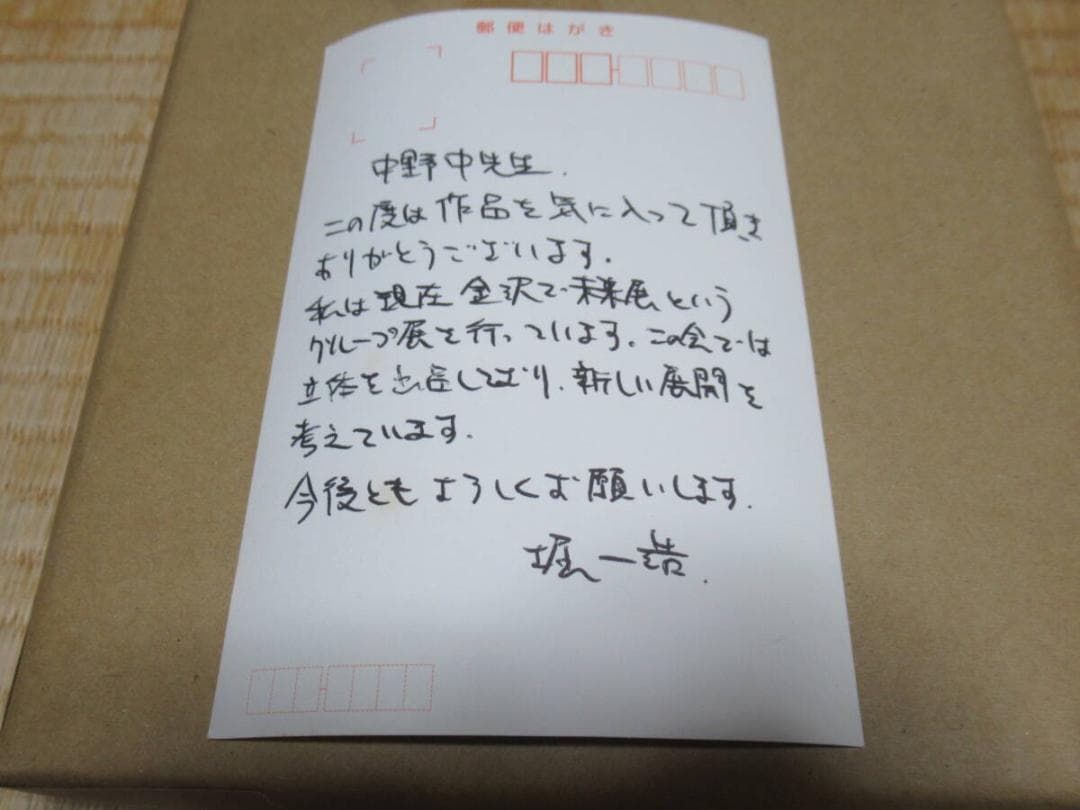 郵便はがき
中野中先生.
この度は作品を気に入って頂き
ありがとうございます.
私は現在金沢で未来展という
グループ展を行っています.この会では
立体を出品しており、新しい展開を
考えています.
今後ともよろしくお願いします.
堀一浩.